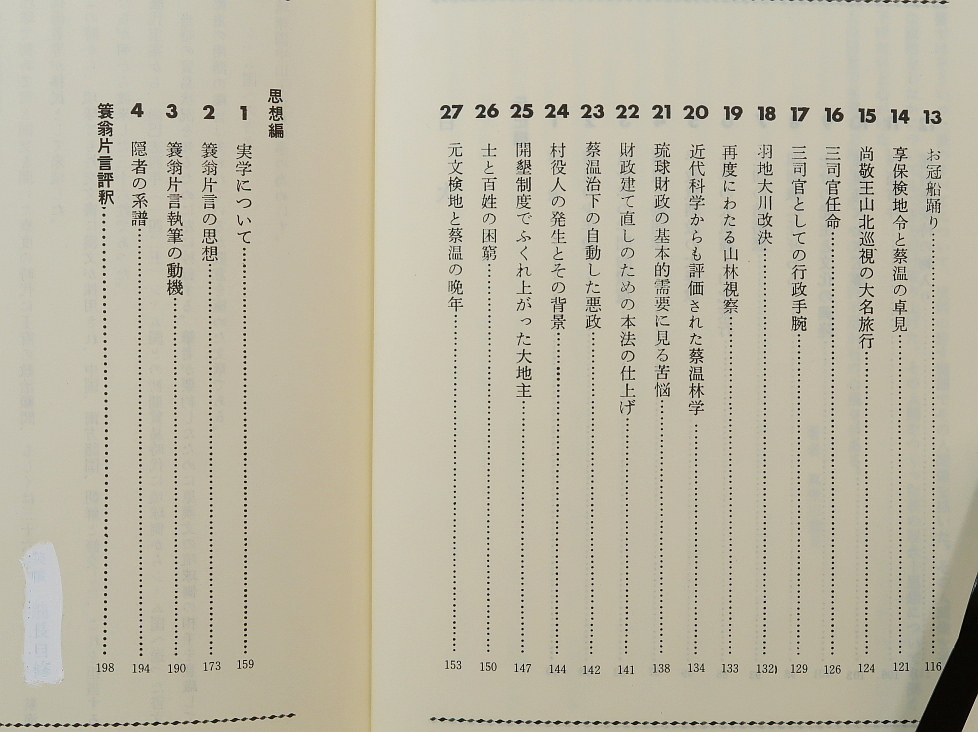 13 お冠船踊り 116
14 享保検地令と蔡温の卓見 121
15 尚敬王山北巡視の大名旅行 124
16 三司官任命 126
17 三司官としての行政手腕 129
18 羽地大川改決 132
19 再度にわたる山林視察 133
20 近代科学からも評価された蔡温林学 134
21 琉球財政の基本的需要に見る苦悩 138
22 財政建て直しのための本法の仕上げ 141
23 蔡温治下の自動した悪政 142
24 村役人の発生とその背景 144
25 開墾制度でふくれ上がった大地主 147
26 士と百姓の困窮 150
27 元文検地と蔡温の晩年 153
思想編
1 実学について 159
2 簑翁片言の思想 173
3 簑翁片言執筆の動機 190
4 隠者の系譜 194
簑翁片言評釈 198